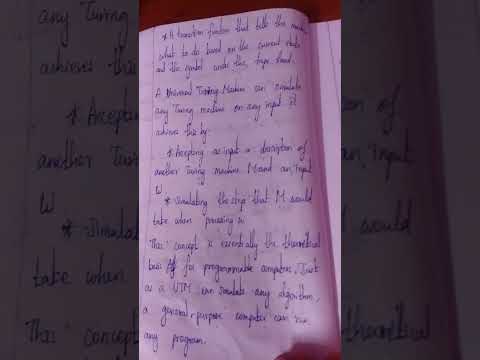 * A transition function that tells the machine
what to do based on the current state
and the symbol under the tape head.
A Universal Turing Machine can simulate
any Turing machine on any input. it
achieves this by:
* Accepting as input a description of
another Turing machine M and an input
W
* Simulating the step that M would
take when processing w
This concept is essentially the theoretical
basis for programmable computers. Just
as a UTM can simulate any algorithm,
a general-purpose computer can run
any program.